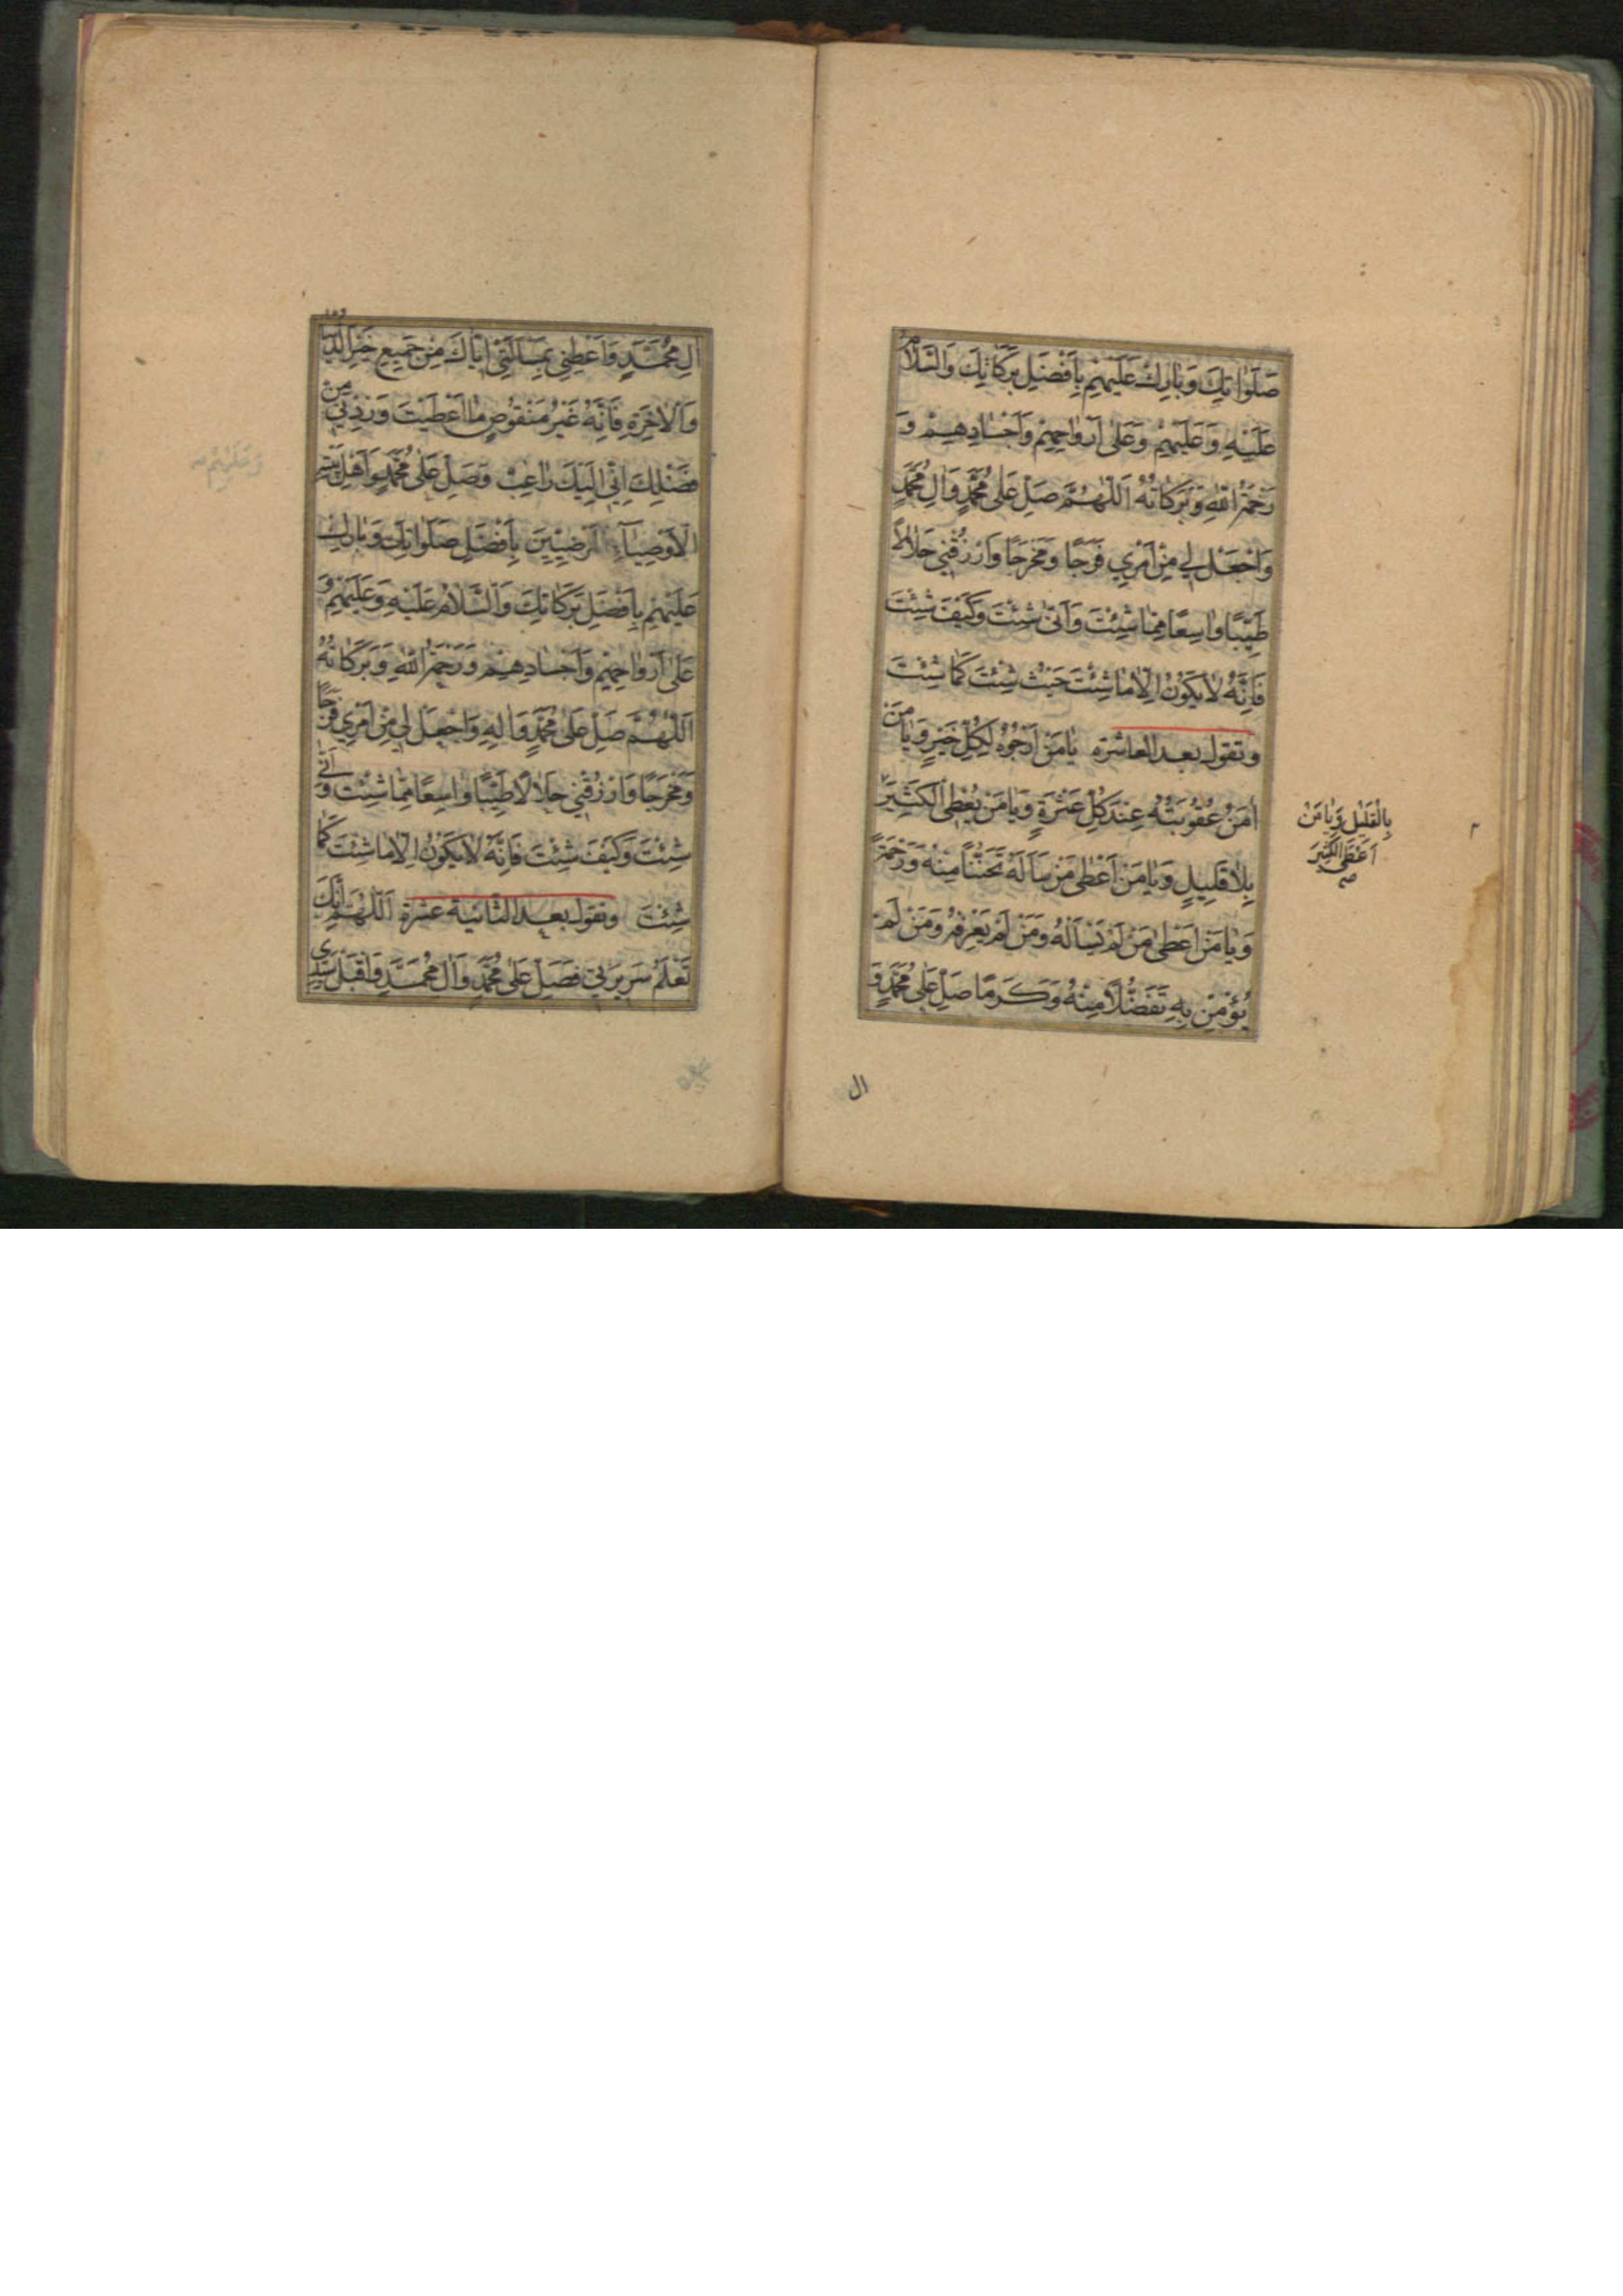 صَلَوٰاتِكَ وَبٰارِكْ عَلَيْهِمْ بِاَفْضَلِ بَرَكٰاتِكَ وَالسَّلٰامُ
عَلَيْهِ وَعَلَيْهِمْ وَعَلٰى اَرْوٰاحِهِمْ وَاَجْسٰادِهِمْ وَ
رَحْمَةُ اللهِ وَبَرَكٰاتُهُ اَللّٰهُمَّ صَلِّ عَلٰى مُحَمَّدٍ وَاٰلِ مُحَمَّدٍ
وَاجْعَلْ لِي مِنْ اَمْرِي فَرَجًا وَمَخْرَجًا وَارْزُقْنِي حَلٰالًا
طَيِّبًا وٰاسِعًا مِمّٰا شِئْتَ وَاَنّٰى شِئْتَ وَكَيْفَ شِئْتَ
فَاِنَّهُ لٰا يَكُوْنُ اِلّٰا مٰا شِئْتَ حَيْثُ شِئْتَ كَمٰا شِئْتَ
وتقول بعد العاشرة يٰا مَنْ اَرْجُوْهُ لِكُلِّ خَيْرٍ وَيٰا مَنْ
اٰمَنُ عُقُوْبَتَهُ عِنْدَ كُلِّ عَثْرَةٍ وَيٰا مَنْ يُعْطِي الْكَثِيْرَ
بِالْقَلِيْلِ وَيٰا مَنْ
اَعْطَى الْكَثِيْرَ
صح
بِلٰا قَلِيْلٍ وَيٰا مَنْ اَعْطٰى مَنْ سَاَلَهُ تَحَنُّنًا مِنْهُ وَرَحْمَةً
وَيٰا مَنْ اَعْطٰى مَنْ لَمْ يَسْاَلْهُ وَمَنْ لَمْ يَعْرِفْهُ وَمَنْ لَمْ
يُؤْمِنْ بِهِ تَفَضُّلًا مِنْهُ وَكَرَمًا صَلِّ عَلٰى مُحَمَّدٍ وَ
ال
اٰلِ مُحَمَّدٍ وَاَعْطِنِي بِمَسْاَلَتِي اِيّٰاكَ مِنْ جَمِيْعِ خَيْرِ الدُّنْيٰا
وَالْاٰخِرَةِ فَاِنَّهُ غَيْرُ مَنْقُوْصٍ مٰا اَعْطَيْتَ وَزِدْنِي مِنْ
فَضْلِكَ اِنِّي اِلَيْكَ رٰاغِبٌ وَصَلِّ عَلٰى مُحَمَّدٍ وَاَهْلِ بَيْتِهِ
الْاَوْصِيٰاءِ الْمَرْضِيِّيْنَ بِاَفْضَلِ صَلَوٰاتِكَ وَبٰارِكْ
عَلَيْهِمْ بِاَفْضَلِ بَرَكٰاتِكَ وَالسَّلٰامُ عَلَيْهِ وَعَلَيْهِمْ وَ
عَلٰى اَرْوٰاحِهِمْ وَاَجْسٰادِهِمْ وَرَحْمَةُ اللهِ وَبَرَكٰاتُهُ
اَللّٰهُمَّ صَلِّ عَلٰى مُحَمَّدٍ وَاٰلِهِ وَاجْعَلْ لِي مِنْ اَمْرِي فَرَجًا
وَمَخْرَجًا وَارْزُقْنِي حَلٰالًا طَيِّبًا وٰاسِعًا مِمّٰا شِئْتَ وَاَنّٰى
شِئْتَ وَكَيْفَ شِئْتَ فَاِنَّهُ لٰا يَكُوْنُ اِلّٰا مٰا شِئْتَ كَمٰا
شِئْتَ وتقول بعد الثانية عشرة اَللّٰهُمَّ اِنَّكَ
تَعْلَمُ سَرِيْرَتِي فَصَلِّ عَلٰى مُحَمَّدٍ وَاٰلِ مُحَمَّدٍ وَاقْبَلْ سَيِّدِي